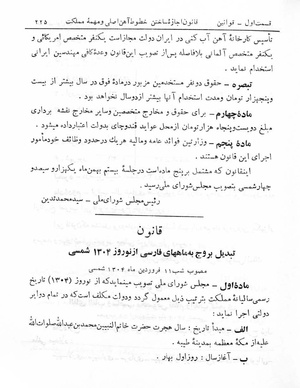 قسمت اول - قوانین   قانون اجازهٔ ساختن خطوط آهن اصلی و مهمهٔ مملکت   ۲۲۵
تأسیس کارخانهٔ آهن آب کنی در ایران دولت مجاز است یکنفر متخصص آمریکائی و
یکنفر متخصص آلمانی بلافاصله پس از تصویب این قانون و عدهٔ کافی مهندسین ایرانی
استخدام نماید.
تبصره - حقوق دو نفر متخصصین مزبور در مادهٔ فوق در سال بیشتر از بیست
و پنجهزار تومان و مدت استخدام آنها بیشتر از دو سال نخواهد بود.
مادهٔ چهارم - برای حقوق و مخارج متخصصین و سایر مخارج نقشه برداری
مبلغ دویست و پنجاه هزار تومان از محل عواید قند و چای بدولت اعتبار داده میشود.
مادهٔ پنجم - وزارتین فوائد عامه و مالیه هریک در حدود وظائف خود مأمور
اجرای این قانون هستند.
این قانون که مشتمل بر پنج ماده است در جلسهٔ بیستم بهمن ماه یکهزار و سیصد و
چهار شمسی بتصویب مجلس شورای ملی رسید.
رئیس مجلس شورای ملی - سید محمد تدین
قانون
تبدیل بروج به ماههای فارسی از نوروز ۱۳۰۴ شمسی
مصوب شب ۱۱ فروردین ماه ۱۳۰۴ شمسی
مادهٔ اول - مجلس شورای ملی تصویب مینماید که از نوروز (۱۳۰۴) تاریخ
رسمی سالیانهٔ مملکت بترتیب ذیل معمول گردد و دولت مکلف است که در تمام دوایر
دولتی اجرا نماید:
الف - مبدأ تاریخ: سال هجرت حضرت خاتم النبیین محمد بن عبدالله صلوات الله
علیه از مکهٔ معظمه بمدینهٔ طیبه.
ب - آغاز سال: روز اول بهار.